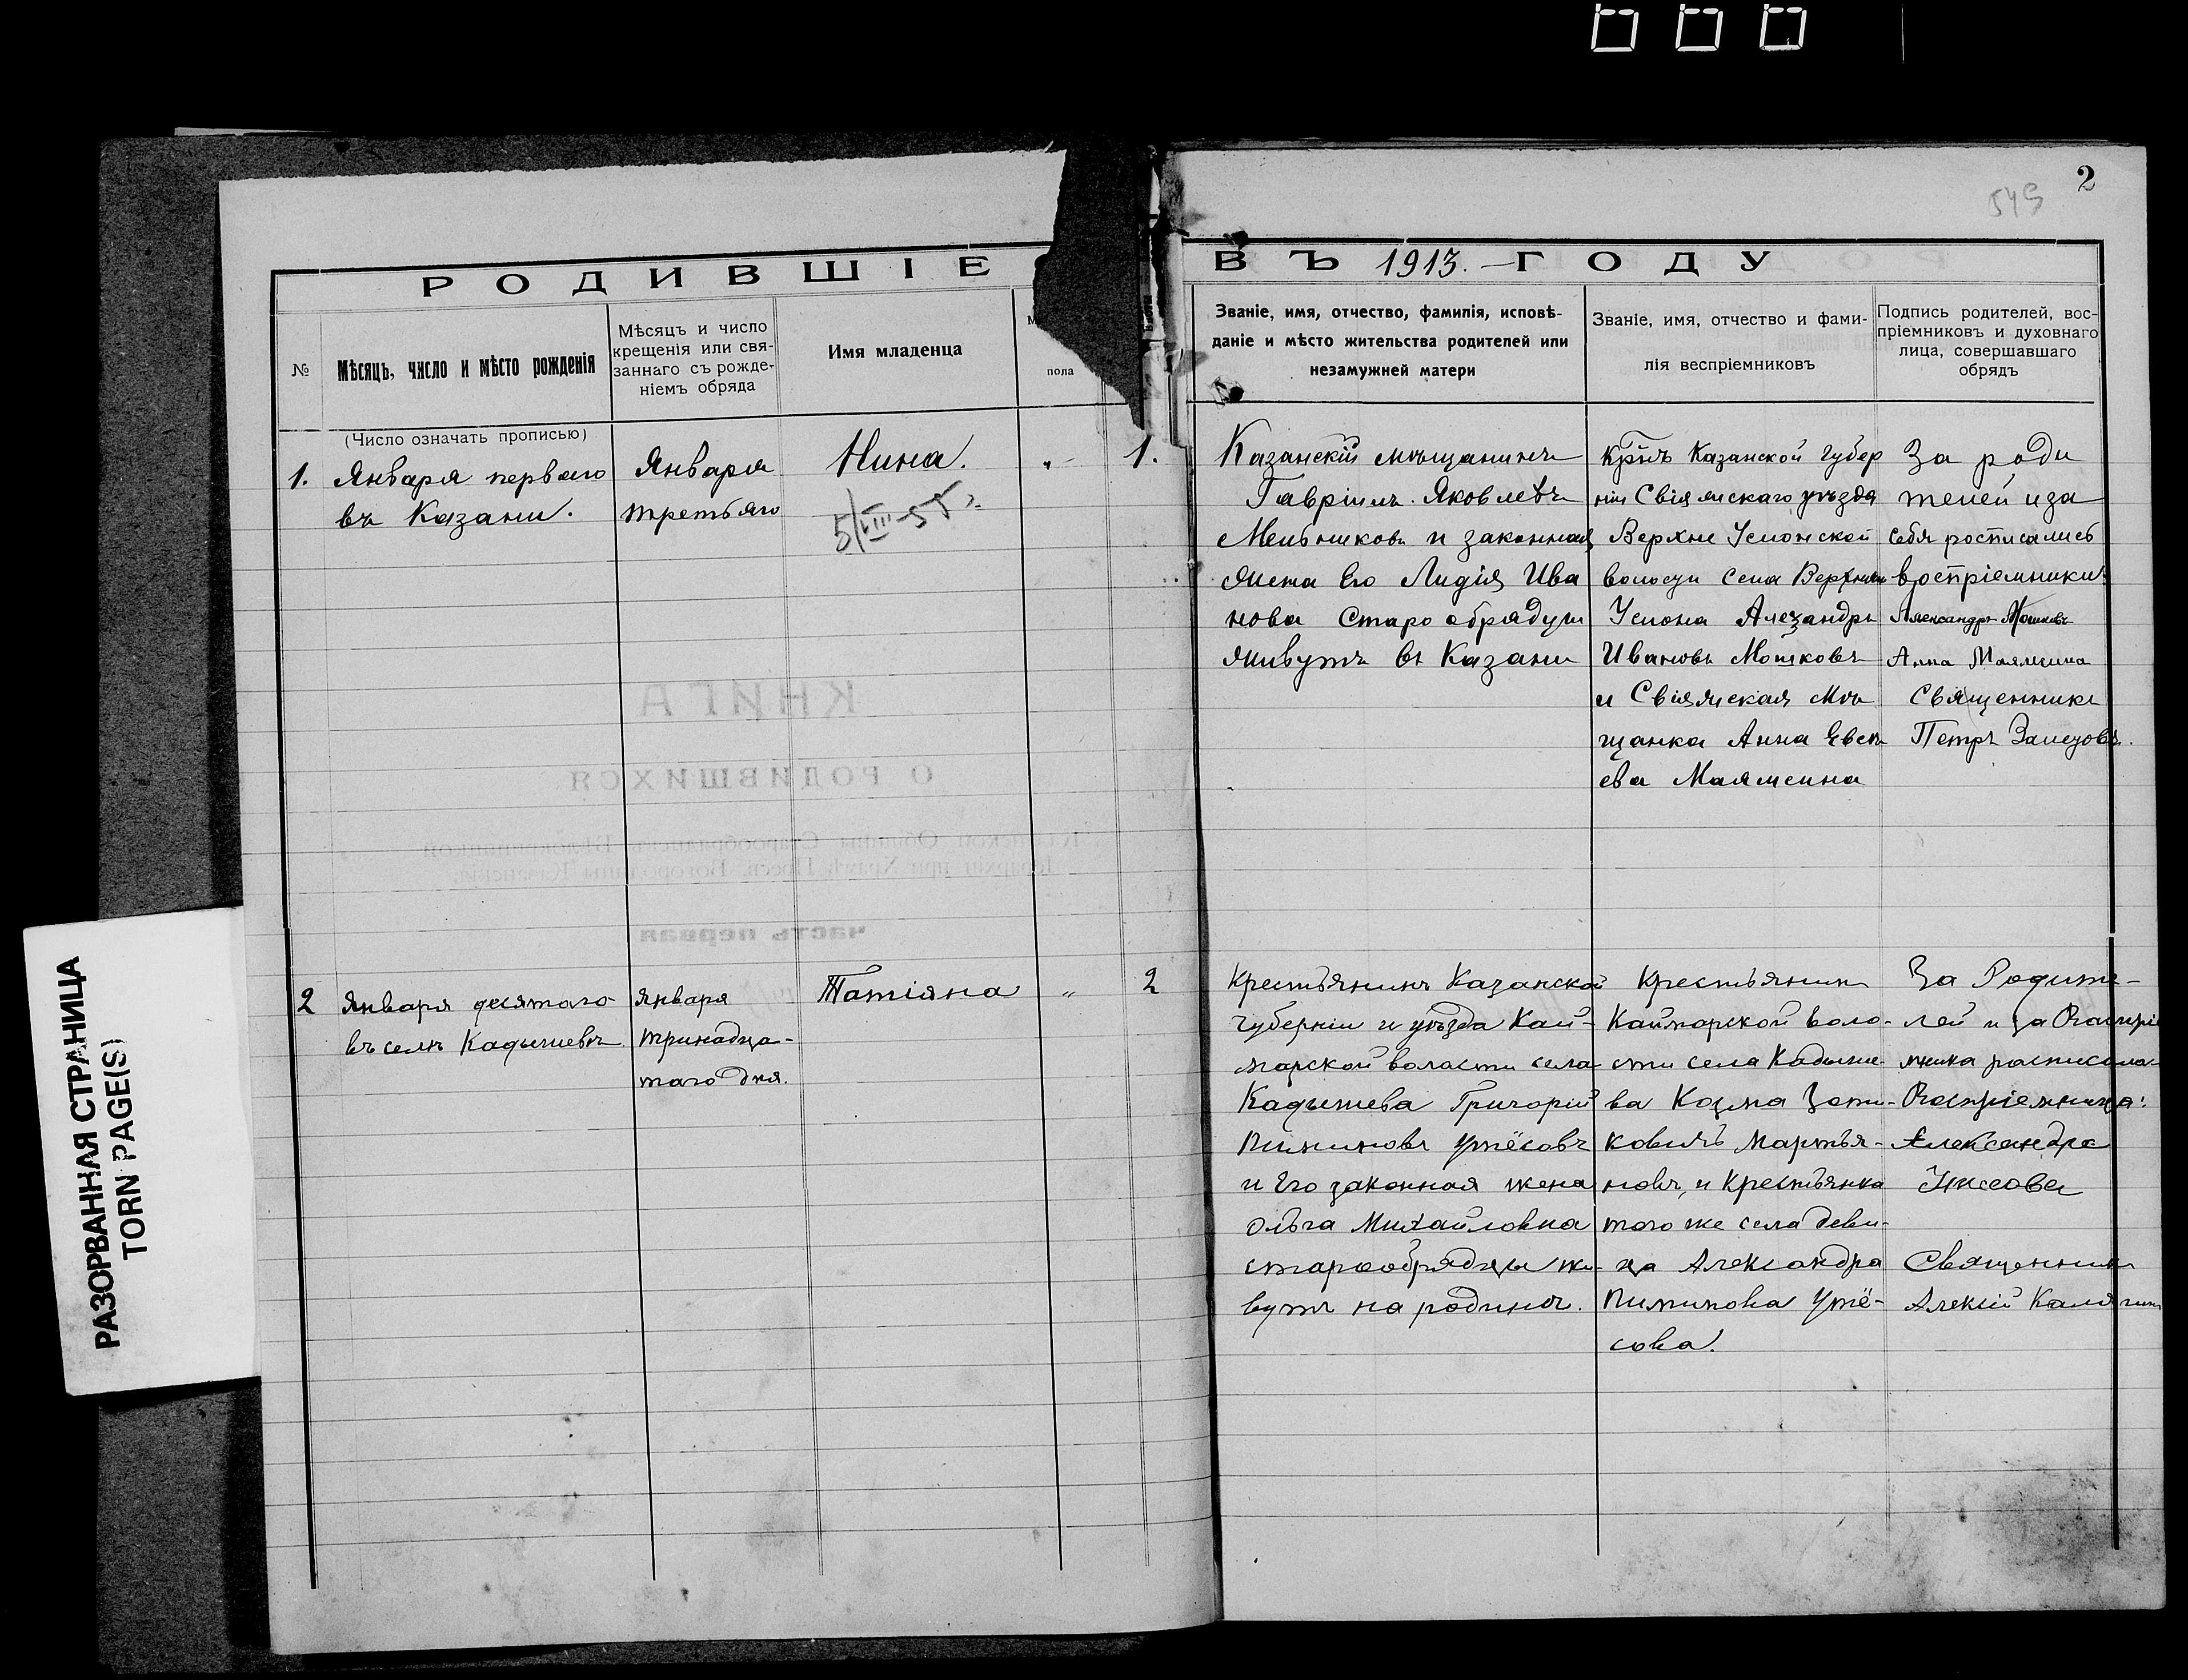 2
549
РОДИВШІЕ
ВЪ 1913. ГОДУ
№
Мѣсяцъ, число и мѣсто рожденія
Мѣсяцъ и число
крещенія или свя-
заннаго съ рожде-
ніемъ обряда
Имя младенца
пола
Званіе, имя, отчество, фамилія, исповѣ-
даніе и мѣсто жительства родителей или
незамужней матери
Званіе, имя, отчество и фами-
лія веспріемниковъ
Подпись родителей, вос-
пріемниковъ и духовнаго
лица, совершавшаго
обрядъ
(Число означать прописью)
1.
Января перваго
въ Казани.
Января
третьяго
Нина.
5/VIII-55 г.
"
1.
Казанскій мѣщанинъ
Гавріилъ Яковлевъ
Мельниковъ и законная
жена Его Лидія Ива
нова Старообрядцы
живутъ въ Казани
Крнъ Казанской губер
ніи Свіяжскаго уѣзда
Верхне Услонской
волости Села Верхняго
Услона Александръ
Ивановъ Мошковъ
и Свіяжская Мѣ
щанка Анна Евсѣ
ева Маямсина
За роди
телей и за
себя росписались
воспріемники:
Александръ Мошковъ
Анна Маямсина
Священникъ
Петръ Залетовъ.
КНИГА
О РОДИВШИХСЯ
Казанской Общины Старообрядцевъ Бѣлокриницкой
Іерархіи при Храмѣ Пресв. Богородицы Казанскія.
часть первая
2
Января десятаго
въ селѣ Кадышевѣ
Января
тринадца-
таго дня.
Татіяна
"
2
Крестьянинъ Казанской
Губерніи и уѣзда Кай-
марской волости села
Кадышева Григорій
Пиминовъ Утёсовъ
и Его законная жена
Ольга Михайловна
старообрядцы жи-
вутъ на родинѣ.
Крестьянинъ
Каймарской воло-
сти села Кадыше-
ва Козма Зоти-
ковичъ Мартья-
новъ, и Крестьянка
того же села деви-
ца Александра
Пиминова Утё-
сова.
За Родите-
лей и за Воспріе
мника росписалась
Воспріемница:
Александра
Утесова
Священникъ
Алексій Калягинъ
РАЗОРВАННАЯ СТРАНИЦА
TORN PAGE(S)